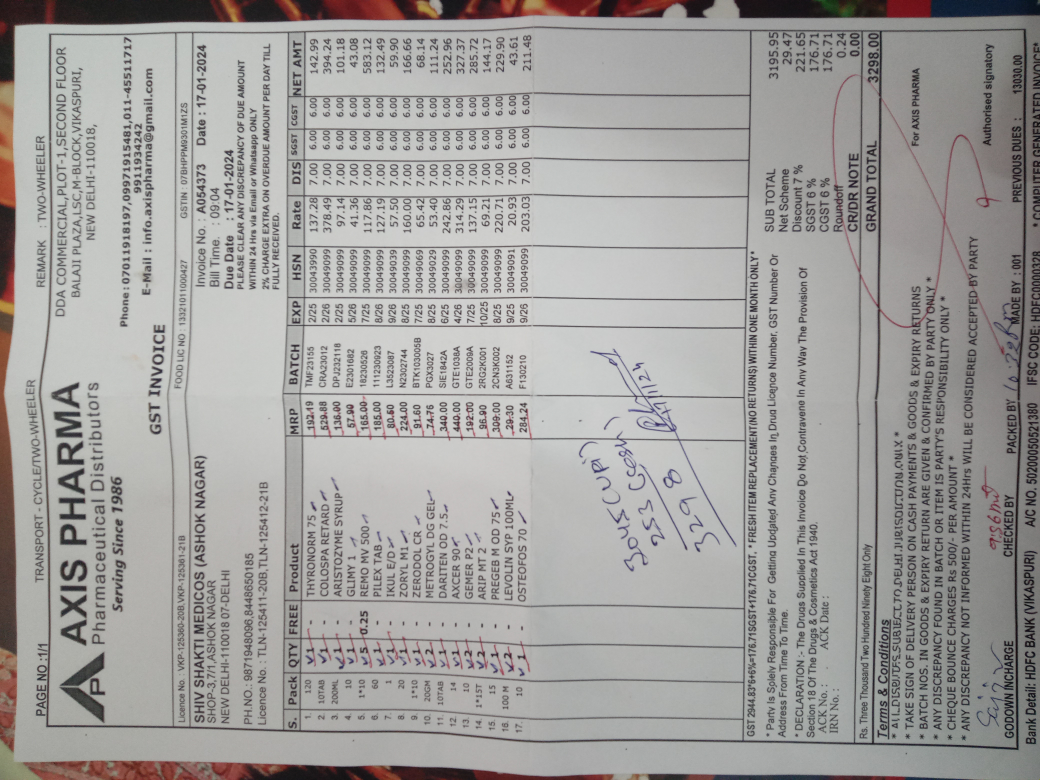 PAGE NO :1/1 TRANSPORT - CYCLE/TWO-WHEELER REMARK : TWO-WHEELER
AXIS PHARMA
Pharmaceutical Distributors
Serving Since 1986
DDA COMMERCIAL,PLOT-1,SECOND FLOOR
BALAJI PLAZA,LSC,M-BLOCK,VIKASPURI,
NEW DELHI-110018,
Phone: 07011918197,09971915481,011-45511717
9911934242
E-Mail : info.axispharma@gmail.com
GST INVOICE
Licence No. : VKP-125360-20B,VKP-125361-21B FOOD LIC NO : 13321011000427 GSTIN 07BHPPM9301M1ZS
SHIV SHAKTI MEDICOS (ASHOK NAGAR)
SHOP-3,7/1,ASHOK NAGAR
NEW DELHI-110018 07-DELHI
PH.NO.: 9871948096,8448650185
Licence No. : TLN-125411-20B,TLN-125412-21B
Invoice No. : A054373 Date : 17-01-2024
Bill Time. : 09:04
Due Date : 17-01-2024
PLEASE CLEAR ANY DISCREPANCY OF DUE AMOUNT
WITHIN 24 Hrs via Email or Whatsapp ONLY
2% CHARGE EXTRA ON OVERDUE AMOUNT PER DAY TILL
FULLY RECEIVED.
S. Pack QTY FREE Product MRP BATCH EXP HSN Rate DIS SGST CGST NET AMT
1. 120 1 - THYRONORM 75 192.19 TMF23155 2/25 30043990 137.28 7.00 6.00 6.00 142.99
2. 10TAB 1 - COLOSPA RETARD 529.88 CRA23012 2/26 30049099 378.49 7.00 6.00 6.00 394.24
3. 200ML 1 - ARISTOZYME SYRUP 136.00 DPJ232118 2/25 30049099 97.14 7.00 6.00 6.00 101.18
4. 10 1 - GLIMY 1 57.90 E2301682 5/26 30049099 41.36 7.00 6.00 6.00 43.08
5. 1*10 5 0.25 REMO MV 500 165.00 18230526 7/25 30049099 117.86 7.00 6.00 6.00 583.12
6. 60 1 - PILEX TAB 185.00 111230923 8/26 30049099 127.19 7.00 6.00 6.00 132.49
7. 1 1 - IKUL E/D 80.50 L3523087 9/26 30049039 57.50 7.00 6.00 6.00 59.90
8. 20 1 - ZORYL M1 224.00 N2302744 8/25 30049099 160.00 7.00 6.00 6.00 166.66
9. 1*10 1 - ZERODOL CR 91.60 BTK103005B 7/25 30049069 65.42 7.00 6.00 6.00 68.14
10. 20GM 2 - METROGYL DG GEL 74.76 PGX3027 8/25 30049029 53.40 7.00 6.00 6.00 111.24
11. 10TAB 1 - DARITEN OD 7.5 340.00 SIE1842A 6/25 30049099 242.86 7.00 6.00 6.00 252.96
12. 14 1 - AXCER 90 440.00 GTE1038A 4/26 30049099 314.29 7.00 6.00 6.00 327.37
13. 10 2 - GEMER P2 192.00 GTE2009A 7/25 30049099 137.15 7.00 6.00 6.00 285.72
14. 1*15T 2 - ARIP MT 2 96.90 2RG2K001 10/25 30049099 69.21 7.00 6.00 6.00 144.17
15. 15 1 - PREGEB M OD 75 309.00 2CN3K002 8/25 30049099 220.71 7.00 6.00 6.00 229.90
16. 100 M 2 - LEVOLIN SYP 100ML 29.30 A631152 9/25 30049091 20.93 7.00 6.00 6.00 43.61
17. 10 1 - OSTEOFOS 70 284.24 F130210 9/26 30049099 203.03 7.00 6.00 6.00 211.48
3045 (UPI)
253 (cash)
3298
GST 2944.83*6+6%=176.71SGST+176.71CGST, * FRESH ITEM REPLACEMENT(NO RETURNS)WITHIN ONE MONTH ONLY *
* Party Is Splely Responsible For Getting Updated Any Changes In Drug Licence Number, GST Number Or
Address From Time To Time.
* DECLARATION :- The Drugs Supplied In This Invoice Do Not Contravene In Any Way The Provision Of
Section 18 Of The Drugs & Cosmetics Act 1940.
ACK No. : ACK Date :
IRN No. :
SUB TOTAL 3195.95
Net Scheme 29.47
Discount 7 % 221.65
SGST 6 % 176.71
CGST 6 % 176.71
Roundoff 0.24
CR/DR NOTE 0.00
Rs. Three Thousand Two Hundred Ninety Eight Only GRAND TOTAL 3298.00
Terms & Conditions
* ALL DISPUTES SUBJECT TO DELHI JURISDICTION ONLY *
* TAKE SIGN OF DELIVERY PERSON ON CASH PAYMENTS & GOODS & EXPIRY RETURNS
* BATCH NOS. IN GOODS & EXPIRY RETURN ARE GIVEN & CONFIRMED BY PARTY ONLY *
* ANY DISCREPANCY FOUND IN BATCH OR ITEM IS PARTY'S RESPONSIBILITY ONLY *
* CHEQUE BOUNCE CHARGES Rs 500/- PER AMOUNT *
* ANY DISCREPANCY NOT INFORMED WITHIN 24Hrs WILL BE CONSIDERED ACCEPTED BY PARTY
For AXIS PHARMA
Authorised signatory
GODOWN INCHARGE CHECKED BY PACKED BY MADE BY : 001 PREVIOUS DUES : 13030.00
Bank Detail: HDFC BANK (VIKASPURI) A/C NO. 50200050521380 IFSC CODE: HDFC0000328 *COMPUTER GENERATED INVOICE*